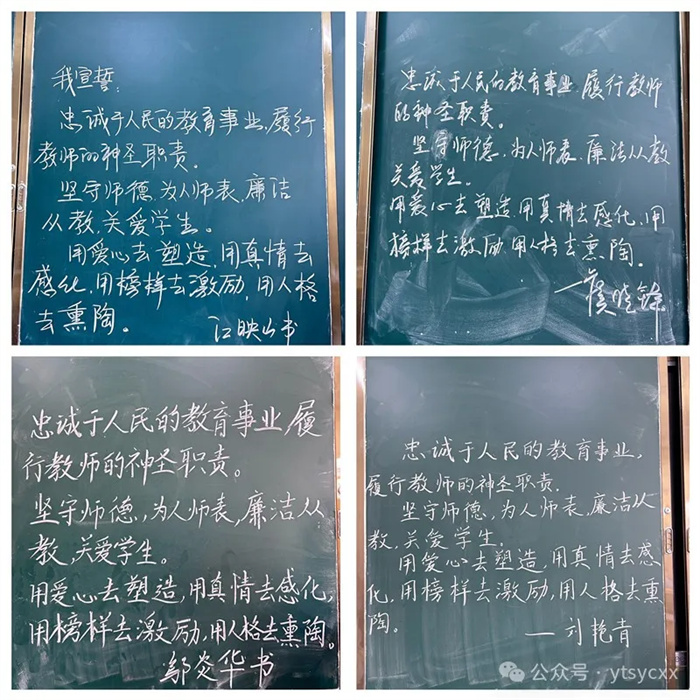 我宣誓:
忠诚于人民的教育事业,履行
教师的神圣职责。
坚守师德,为人师表,廉洁
从教,关爱学生。
用爱心去塑造,用真情去
感化,用榜样去激励,用人格
去熏陶。
江映山书
忠诚于人民的教育事业,履行教师
的神圣职责。
坚守师德,为人师表,廉洁从教
关爱学生。
用爱心去塑造,用真情去感化,用
榜样去激励,用人格去熏陶。
忠诚于人民的教育事业,履
行教师的神圣职责。
坚守师德,为人师表,廉洁从
教,关爱学生。
用爱心去塑造,用真情去感化,
用榜样去激励,用人格去熏陶。
邬炎华书
忠诚于人民的教育事业,
履行教师的神圣职责.
坚守师德,为人师表,廉洁从
教,关爱学生。
用爱心去塑造,用真情去感
化,用榜样去激励,用人格去熏
陶。
——刘艳青
公众号·ytsycxx